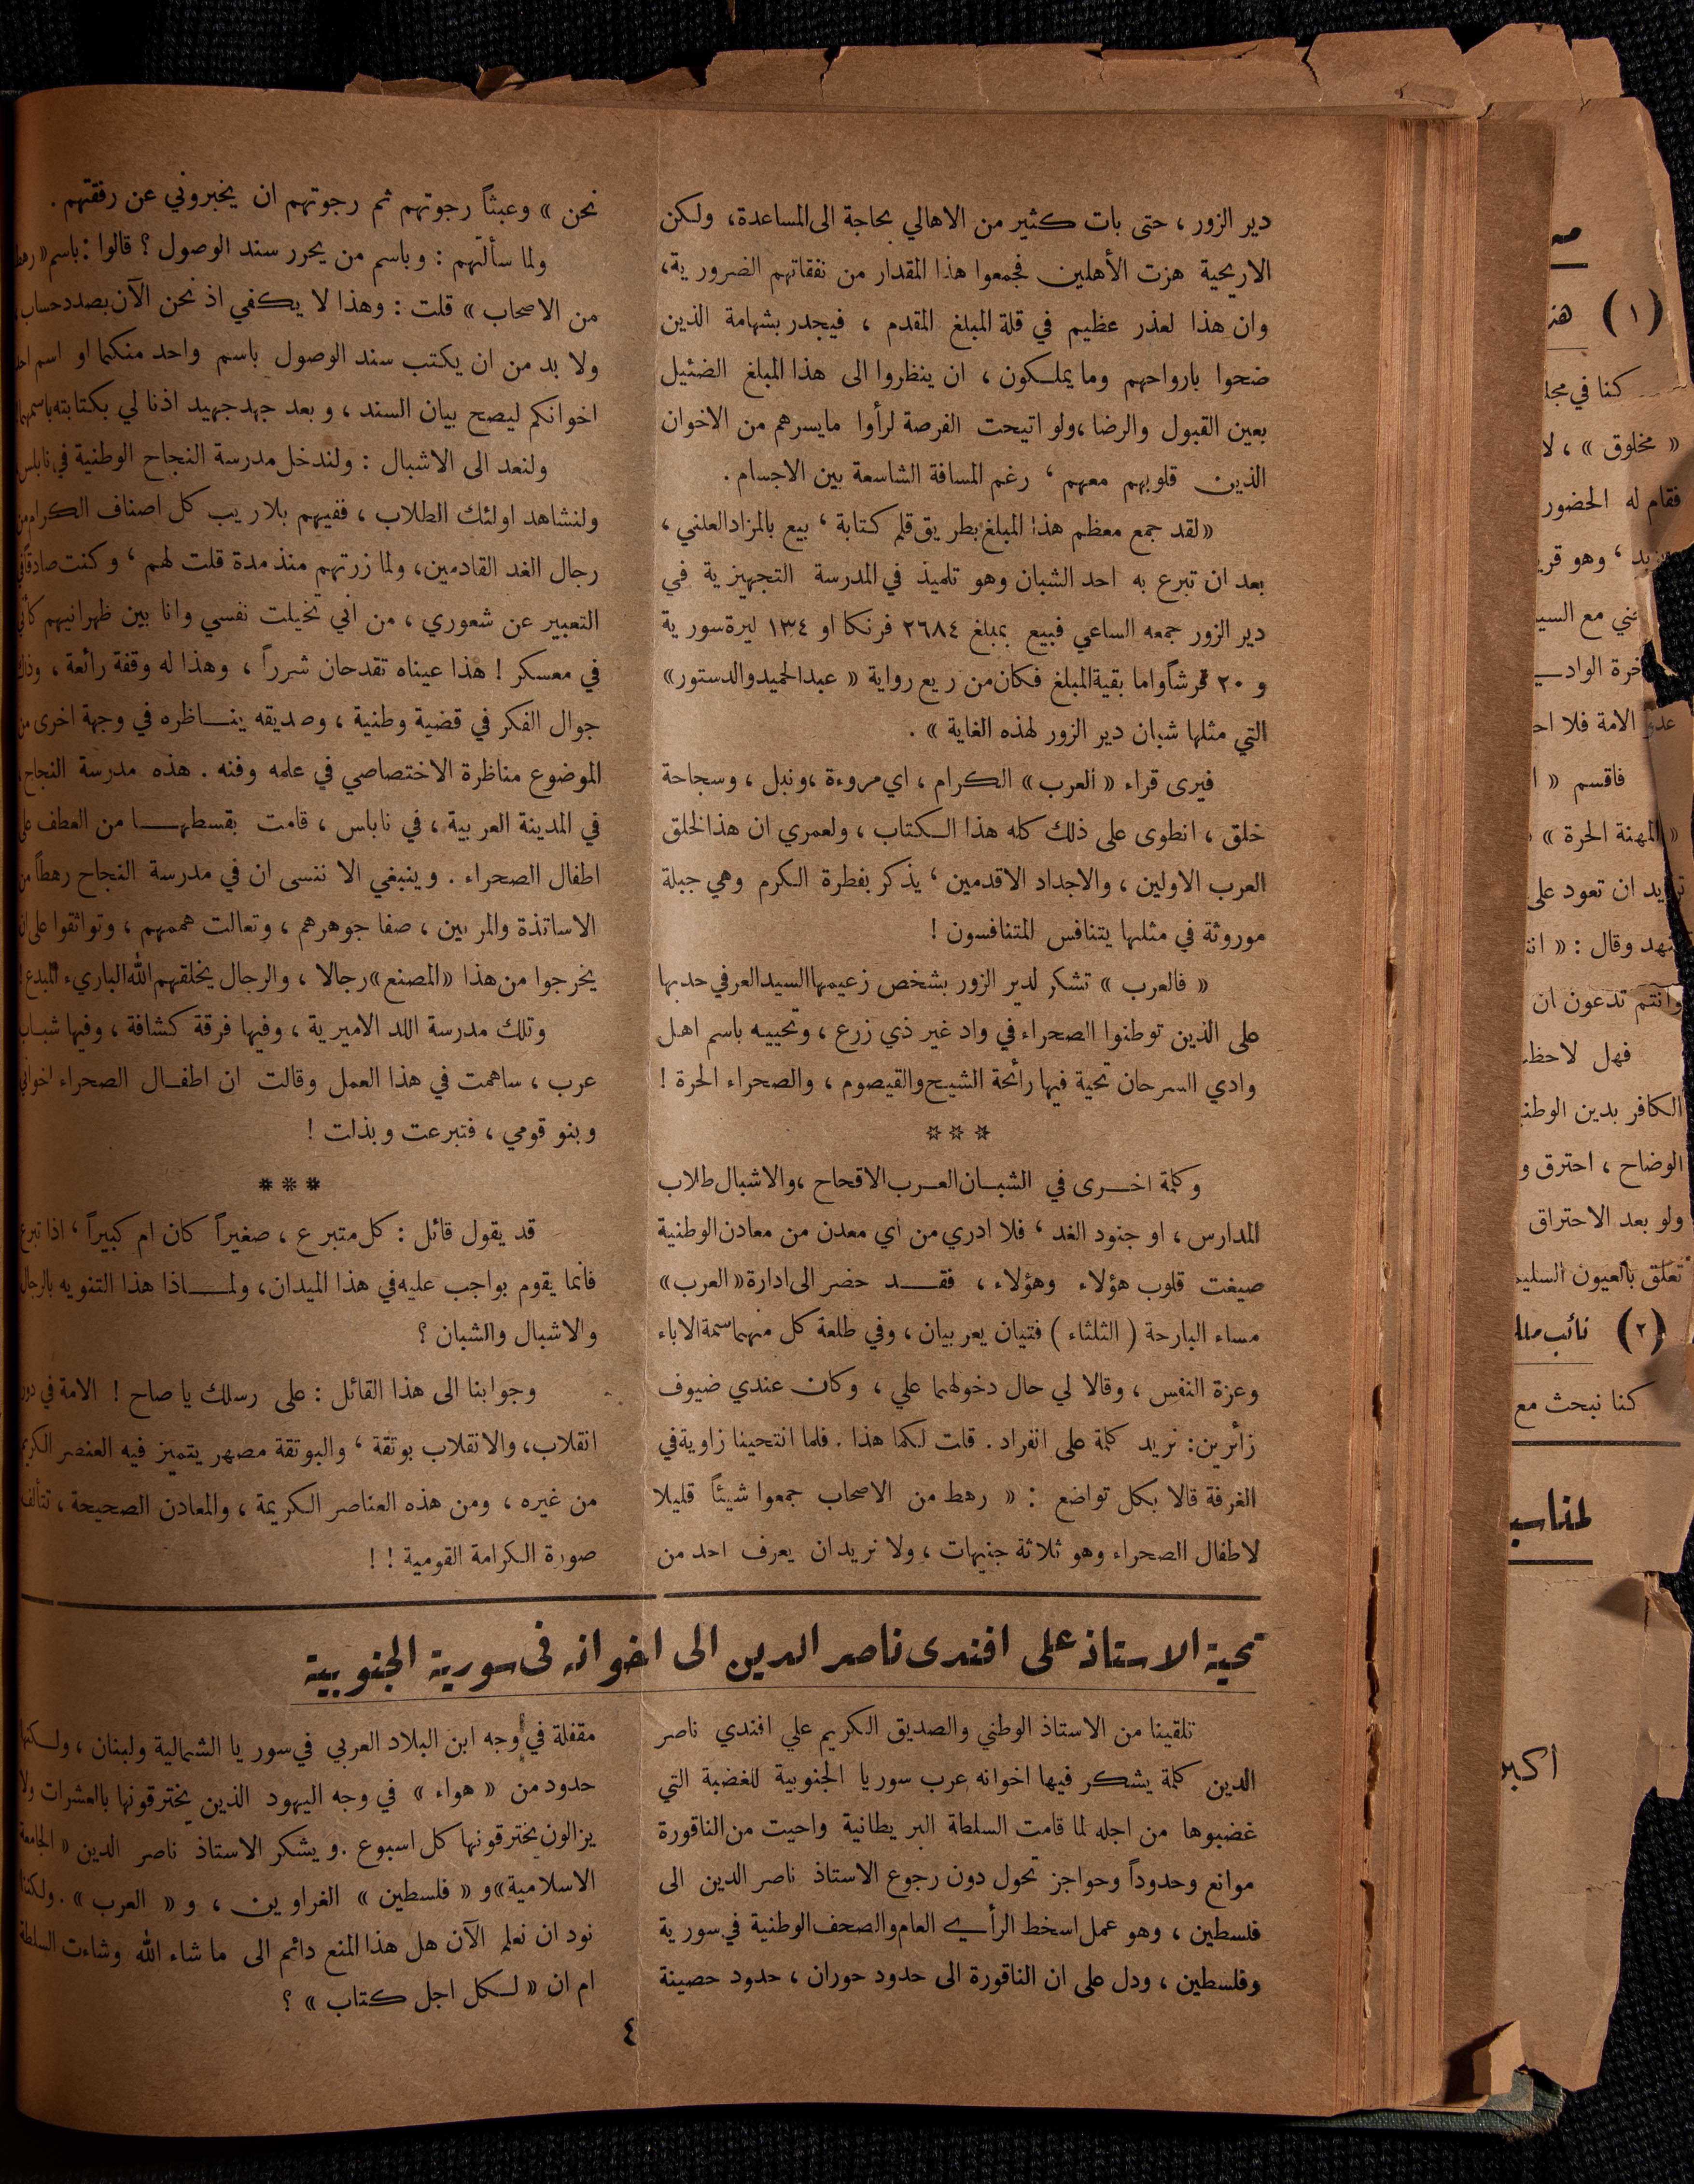 دير الزور ، حتى بات كثير من الاهالي بحاجة الى المساعدة، ولكن
الاريحية هزت الأهلين فجمعوا هذا المقدار من نفقاتهم الضرورية،
وان هذا لعذر عظيم في قلة المبلغ المقدم ، فيجدر بشهامة الذين
ضحوا بارواحهم وما يملكون ، ان ينظروا الى هذا المبلغ الضئيل
بعين القبول والرضا ،ولو اتيحت الفرصة لرأوا مايسرهم من الاخوان
الذين قلوبهم معهم ، رغم المسافة الشاسعة بين الاجسام .
«لقد جمع معظم هذا المبلغ بطريق قلم كتابة ، بيع بالمزاد العلني ،
بعد ان تبرع به احد الشبان وهو تلميذ في المدرسة التجهيزية في
دير الزور جمعه الساعي فبيع بمبلغ ٢٦٨٤ فرنكا او ١٣٤ ليرة سورية
و ٢٠ قرشاً واما بقية المبلغ فكان من ريع رواية « عبد الحميد والدستور»
التي مثلها شبان دير الزور لهذه الغاية » .
فيرى قراء « العرب» الكرام ، اي مروءة ،ونبل ، وسجاحة
خلق ، انطوى على ذلك كله هذا الكتاب ، ولعمري ان هذا لخلق
العرب الاولين ، والاجداد الاقدمين ، يذكر بفطرة الكرم وهي جبلة
موروثة في مثلها يتنافس المتنافسون !
« فالعرب » تشكر لدير الزور بشخص زعيمها السيد العرفي حدبها
على الذين توطنوا الصحراء في واد غير ذي زرع ، وتحييه باسم اهل
وادي السرحان تحية فيها رائحة الشيح والقيصوم ، والصحراء الحرة !
* * *
وكلمة اخرى في الشبان العرب الاقحاح ،والاشبال طلاب
المدارس ، او جنود الغد ، فلا ادري من اي معدن من معادن الوطنية
صيغت قلوب هؤلاء وهؤلاء ، فقد حضر الى ادارة « العرب»
مساء البارحة ( الثلثاء ) فتيان يعربيان ، وفي طلعة كل منهما سمة الاباء
وعزة النفس ، وقالا لي حال دخولهما علي ، وكان عندي ضيوف
زائرين: نريد كلمة على انفراد . قلت لكما هذا . فلما انتحينا زاوية في
الغرفة قالا بكل تواضع : « رهط من الاصحاب جمعوا شيئاً قليلا
لاطفال الصحراء وهو ثلاثة جنيهات ، ولا نريد ان يعرف احد من
نحن » وعبثاً رجوتهم ثم رجوتهم ان يخبروني عن رفقتهم .
ولما سألتهم : وباسم من يحرر سند الوصول ؟ قالوا : باسم « رهط
من الاصحاب » قلت : وهذا لا يكفي اذ نحن الآن بصدد حساب
ولا بد من ان يكتب سند الوصول باسم واحد منكما او اسم
اخوانكم ليصح بيان السند ، وبعد جهد جهيد اذنا لي بكتابته باسمهما
ولنعد الى الاشبال : ولندخل مدرسة النجاح الوطنية في نابلس
ولنشاهد اولئك الطلاب ، ففيهم بلاريب كل اصناف الكرام من
رجال الغد القادمين، ولما زرتهم منذ مدة قلت لهم ، وكنت صادقاً في
التعبير عن شعوري ، من اني تخيلت نفسي وانا بين ظهرانيهم كأني
في معسكر ! هذا عيناه تقدحان شرراً ، وهذا له وقفة رائعة ، وذاك
جوال الفكر في قضية وطنية ، وصديقه يناظره في وجهة اخرى من
الموضوع مناظرة الاختصاصي في علمه وفنه . هذه مدرسة النجاح
في المدينة العربية ، في نابلس ، قامت بقسطها من العطف على
اطفال الصحراء . وينبغي الا ننسى ان في مدرسة النجاح رهطاً من
الاساتذة والمربين ، صفا جوهرهم ، وتعالت هممهم ، وتواثقوا على ان
يخرجوا من هذا «المصنع» رجالا ، والرجال يخلقهم الله الباريء المبدع
وتلك مدرسة اللد الاميرية ، وفيها فرقة كشافة ، وفيها شباب
عرب ، ساهمت في هذا العمل وقالت ان اطفال الصحراء اخواني
وبنو قومي ، فتبرعت وبذلت !
* * *
قد يقول قائل : كل متبرع ، صغيراً كان ام كبيراً ، اذا تبرع
فانما يقوم بواجب عليه في هذا الميدان ، ولماذا هذا التنويه بالرجال
والاشبال والشبان ؟
وجوابنا الى هذا القائل : على رسلك يا صاح ! الامة في دور
انقلاب، والانقلاب بوتقة ، والبوتقة مصهر يتميز فيه العنصر الكريم
من غيره ، ومن هذه العناصر الكريمة ، والمعادن الصحيحة ، تتألف
صورة الكرامة القومية ! !
تحية الاستاذ على افندى ناصر الدين الى اخوانه فى سورية الجنوبية
تلقينا من الاستاذ الوطني والصديق الكريم علي افندي ناصر
الدين كلمة يشكر فيها اخوانه عرب سوريا الجنوبية للغضبة التي
غضبوها من اجله لما قامت السلطة البريطانية واحيت من الناقورة
موانع وحدوداً وحواجز تحول دون رجوع الاستاذ ناصر الدين الى
فلسطين ، وهو عمل اسخط الرأي العام والصحف الوطنية في سورية
وفلسطين ، ودل على ان الناقورة الى حدود حوران ، حدود حصينة
مقفلة في وجه ابن البلاد العربي في سوريا الشمالية ولبنان ، ولكنها
حدود من « هواء » في وجه اليهود الذين يخترقونها بالعشرات ولا
يزالون يخترقونها كل اسبوع . ويشكر الاستاذ ناصر الدين « الجامعة
الاسلامية» و « فلسطين » الغراوين ، و « العرب » . ولكننا
نود ان نعلم الآن هل هذا المنع دائم الى ما شاء الله وشاءت السلطة
ام ان « لكل اجل كتاب » ؟
٤
(١) هذ
كنا في مجل
« مخلوق » ، لا
فقام له الحضور
، وهو قر
ني مع السيد
الامة فلا اح
فاقسم « ا
« المهنة الحرة »
ان تعود على
وقال : « انت
وانتم تدعون ان
فهل لاحظ
الكافر بدين الوطن
الوضاح ، احترق و
ولو بعد الاحتراق
تعلق بالعيون السليم
(٢) نائب
كنا نبحث مع
لمناسب
أكبر